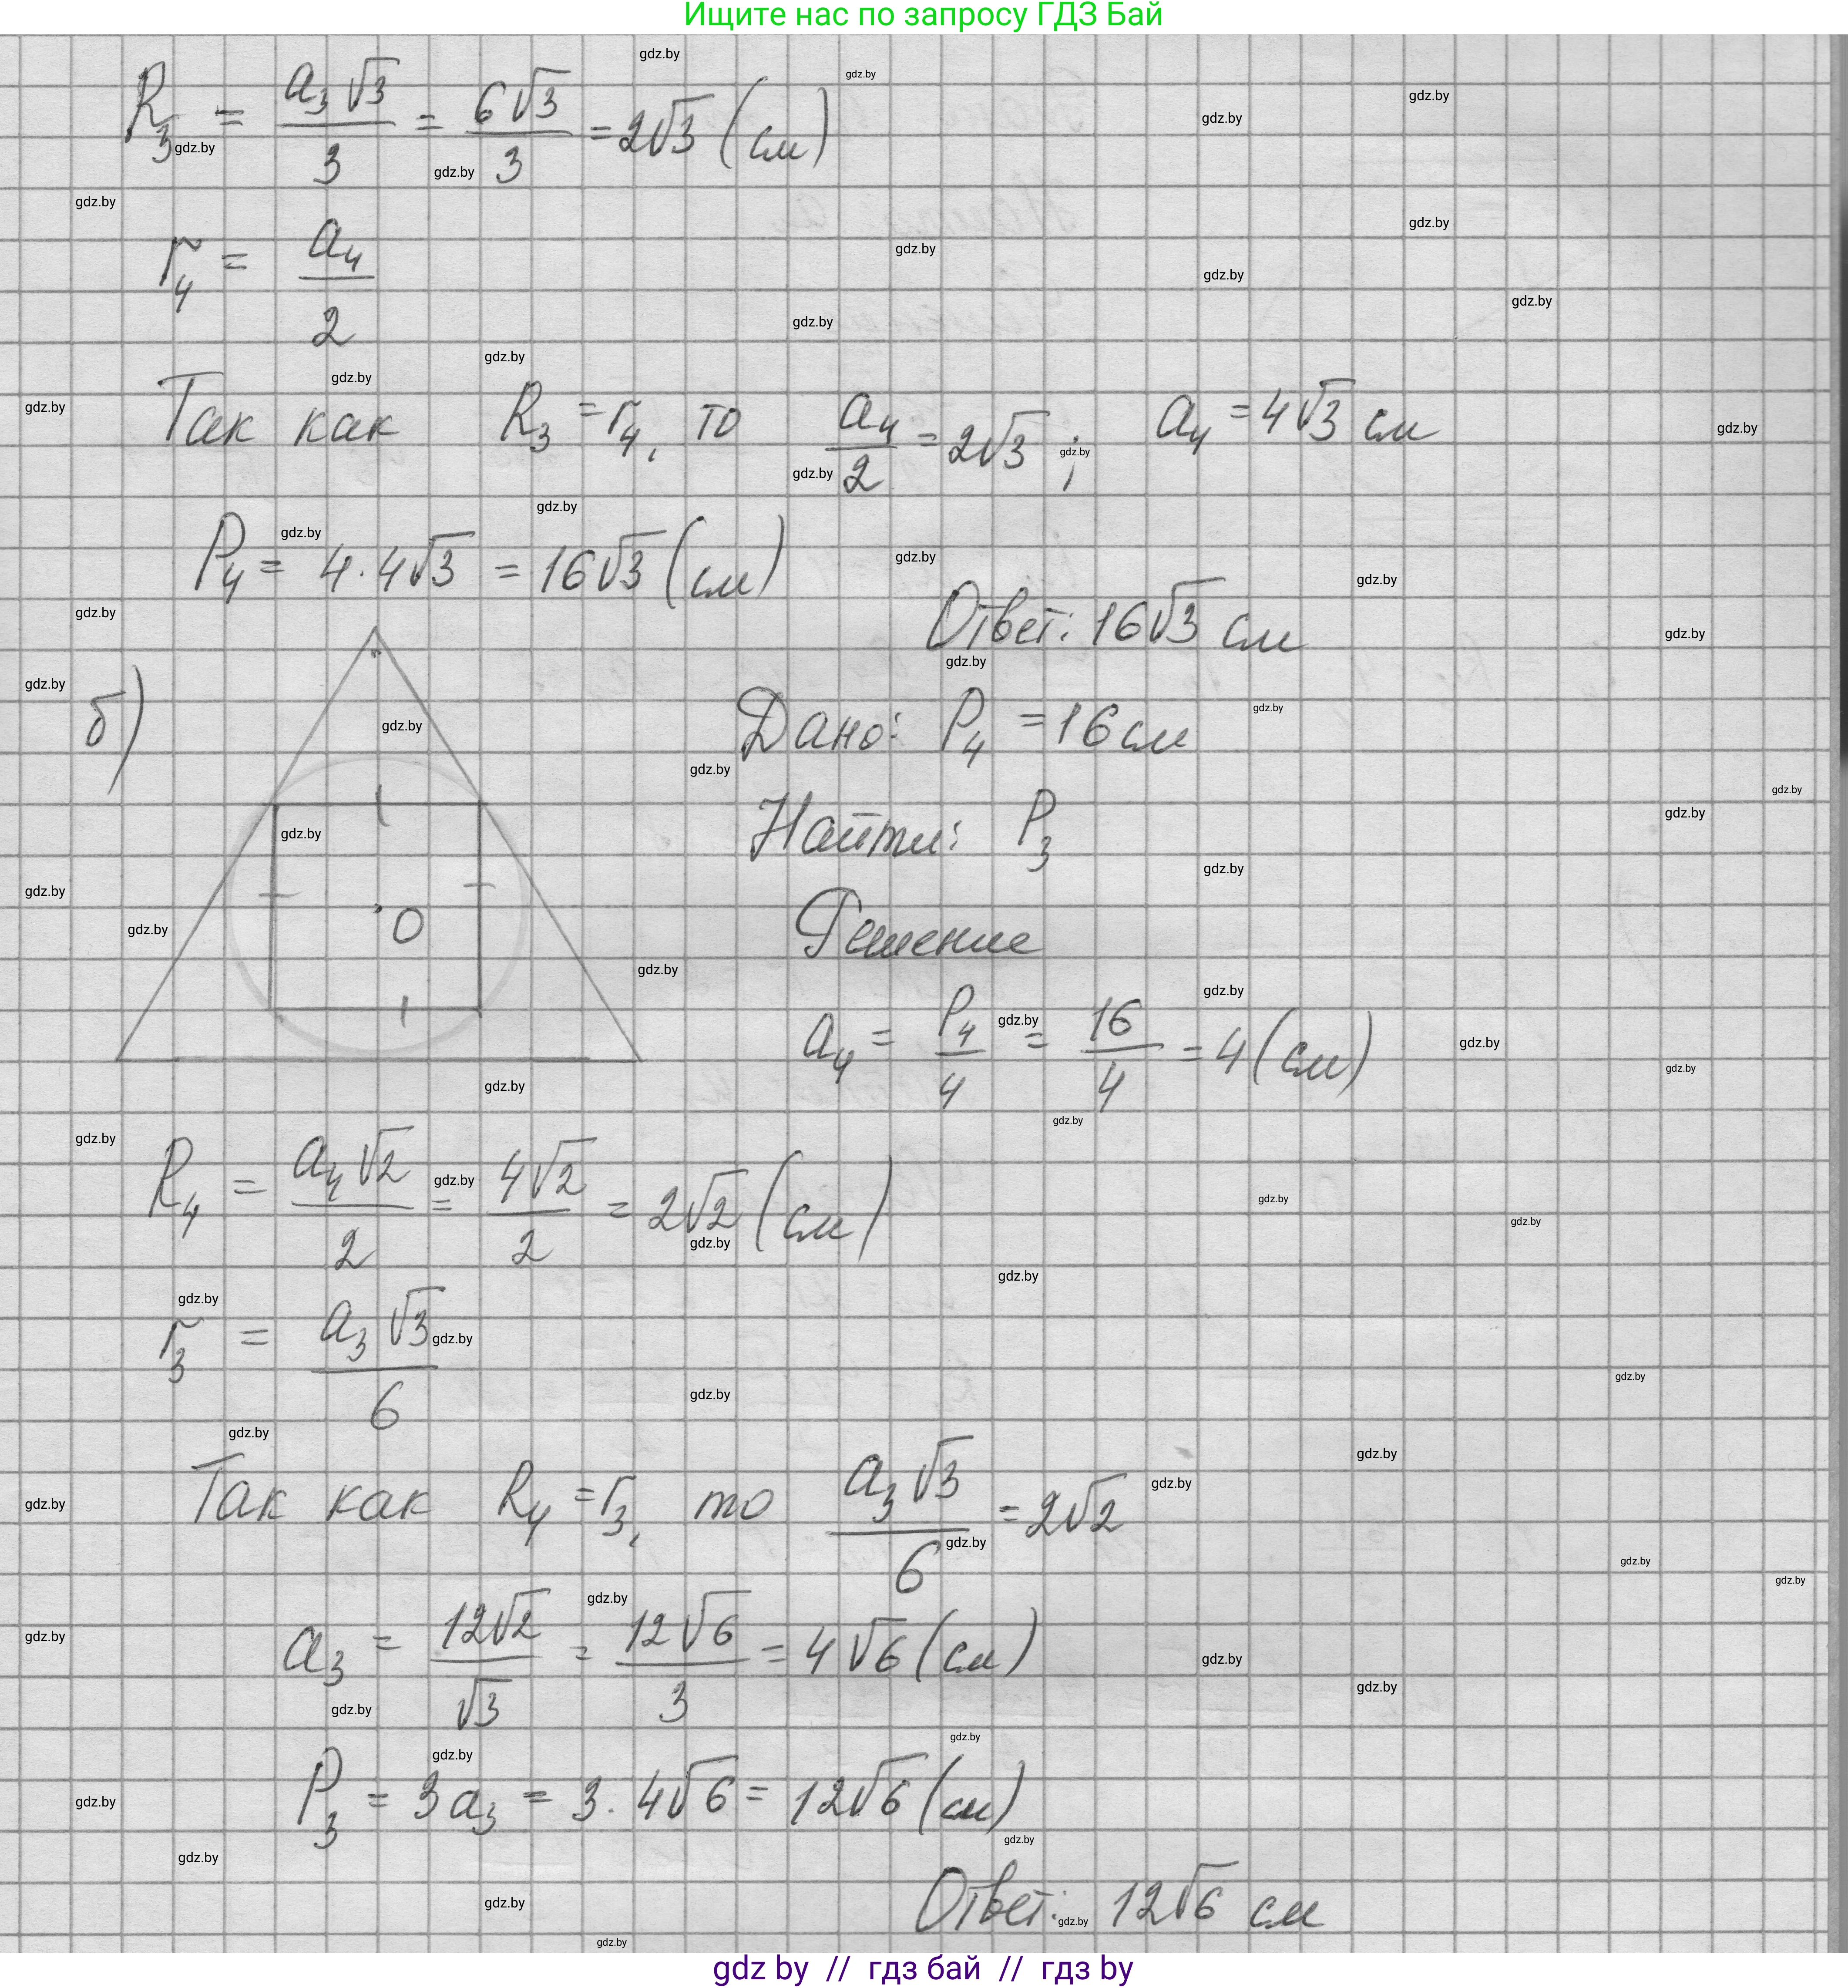 Ищите нас по запросу ГДЗ Бай
R₃ = a₃√3/3 = 6√3/3 = 2√3 (см)
r₄ = a₄/2
Так как R₃ = r₄, то a₄/2 = 2√3 ; a₄ = 4√3 см
P₄ = 4·4√3 = 16√3 (см)
Ответ: 16√3 см
б)
O
Дано: P₄ = 16 см
Найти: P₃
Решение
a₄ = P₄/4 = 16/4 = 4 (см)
R₄ = a₄√2/2 = 4√2/2 = 2√2 (см)
r₃ = a₃√3/6
Так как R₄ = r₃, то a₃√3/6 = 2√2
a₃ = 12√2/√3 = 12√6/3 = 4√6 (см)
P₃ = 3a₃ = 3·4√6 = 12√6 (см)
Ответ: 12√6 см
gdz by // гдз бай // гдз by